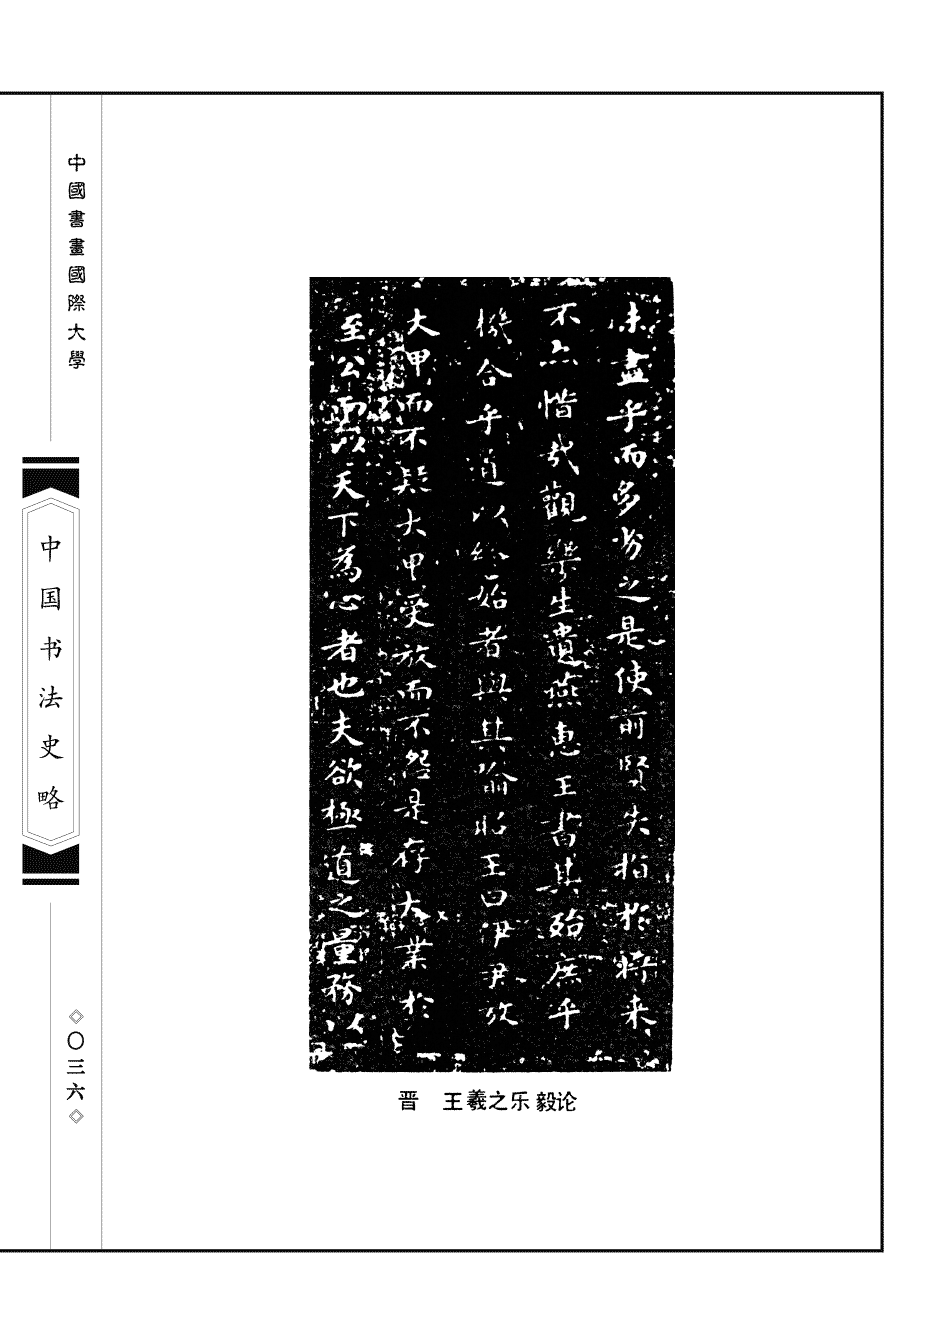 中國書畫國際大學
中国书法史略
〇三六
未盡乎而多劣之是使前賢失指於將来
不亦惜哉觀樂生遺燕惠王書其殆庶乎
機合乎道以終始者與其喻昭王曰伊尹放
大甲而不疑大甲受放而不怨是存大業於
至公而以天下為心者也夫欲極道之量務以
晋 王羲之乐毅论